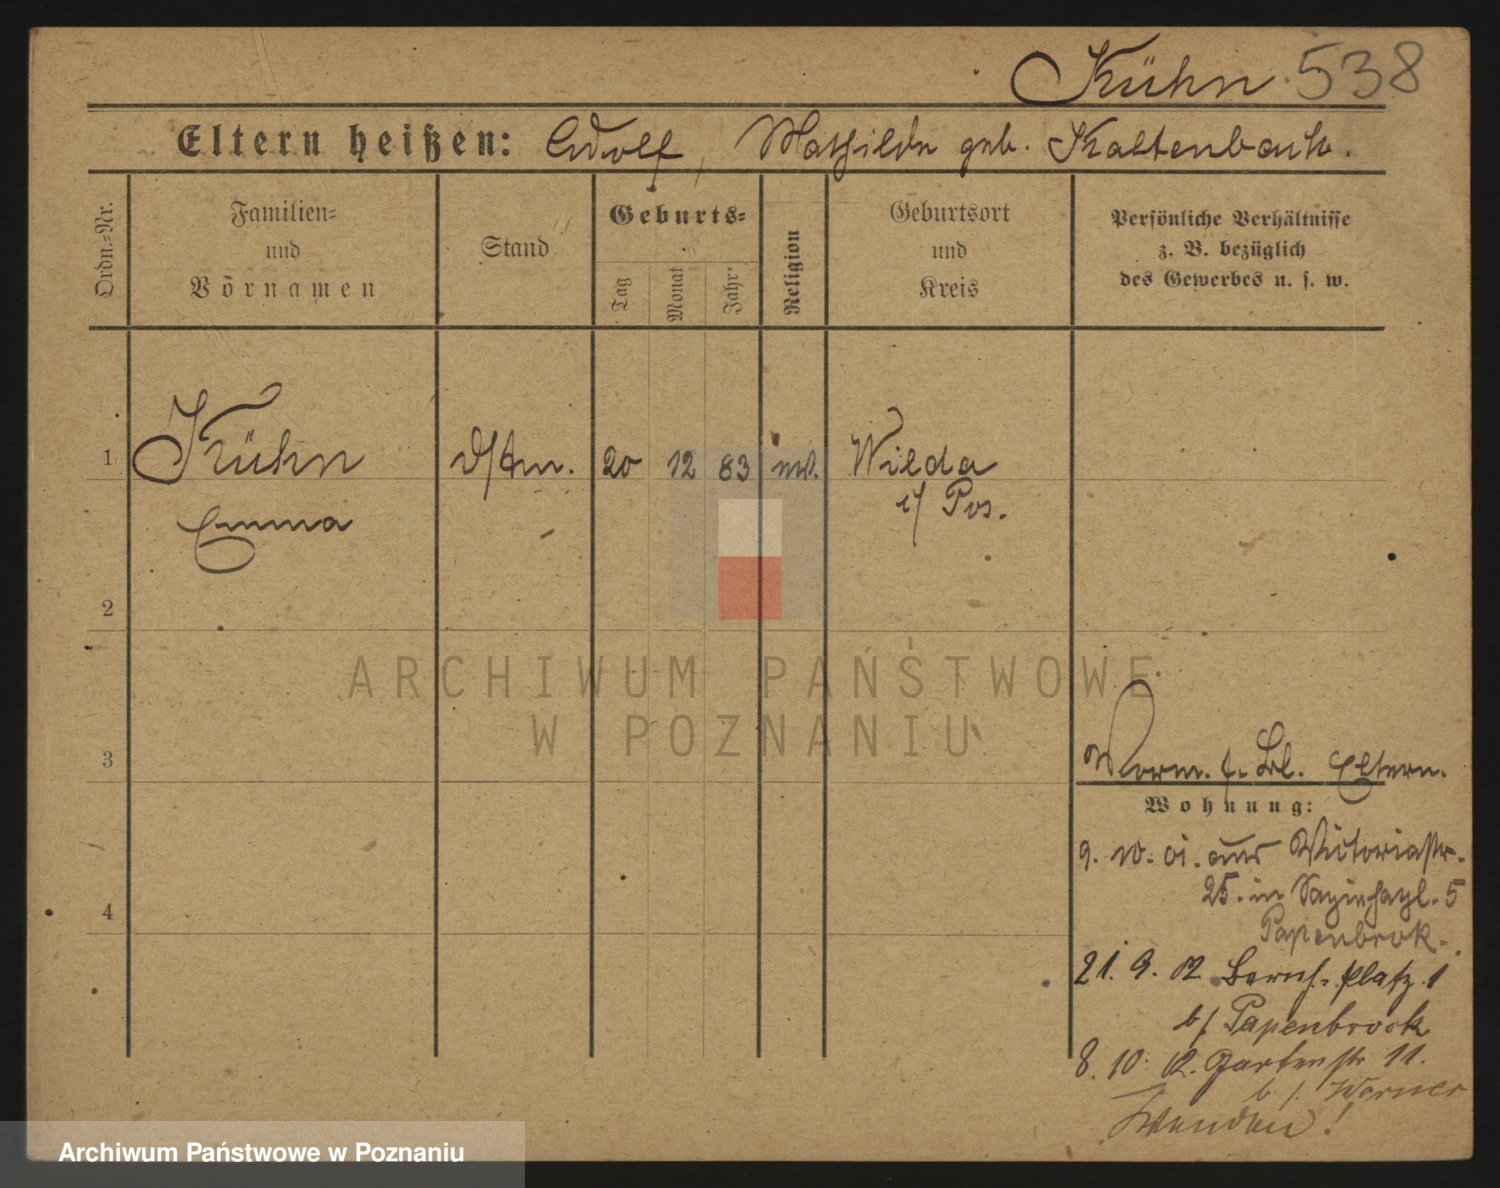 Kühn 538
Eltern heißen: Adolf, Mathilde geb. Kaltenbach.
Ordn.=Nr.
Familien=
und
Vornamen
Stand
Geburts=
Tag
Monat
Jahr
Religion
Geburtsort
und
Kreis
Persönliche Verhältnisse
z. B. bezüglich
des Gewerbes u. s. w.
1 Kühn 20 12 83 Wilda
Emma
Pos.
2
ARCHIWUM PAŃSTWOWE
W POZNANIU
3
Eltern.
Wohnung:
9. 10. 01. aus Victoriastr.
25. in 5
Papenbrok.
4
21. 9. 02 Platz 1
b/ Papenbrock
8. 10. 02. Gartenstr 11.
b/. Werner
Wenden!
Archiwum Państwowe w Poznaniu